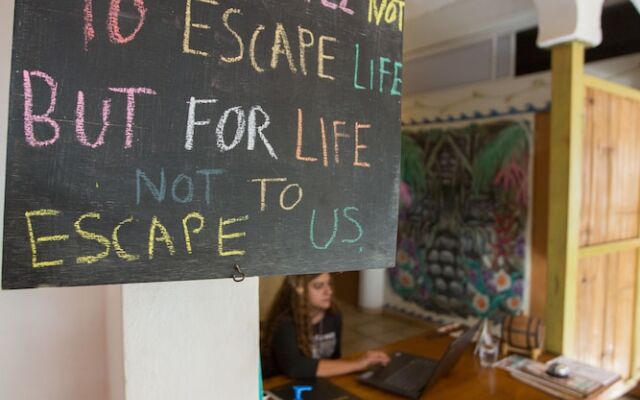 TO ESCAPE LIFE
NOT
BUT FOR LIFE
NOT TO
ESCAPE US.